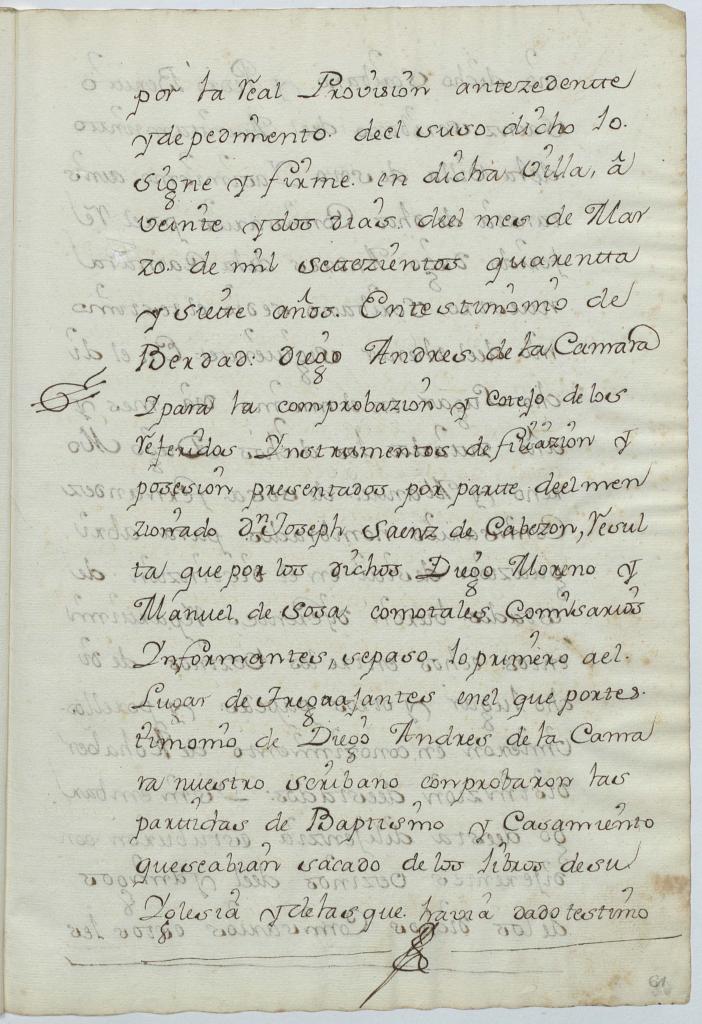 por la rˢeal Provision antezedentte
y de pedimiento. deel suso dicho lo.
signe y firme. en dicha Villa, â
veinte y dos dias. deel mes de Mar
zo. de mil settezientos quarentta
y siette años. En testimonio de
Berdad: Diego Andres de la Camara
Y para la comprobazion y Cotejo de los
referidos Ynstrumentos de filiazion y
posesion presentados por partte deel men
zionado Dⁿ Joseph Saenz de Cabezon, resul
ta que por los dichos Diego Moreno y
Manuel, de Sosa, como tales Comisarios
Informantes, se paso, lo primero a el.
Lugar de Tregua jantes en el que por tes.
timonio, de Diego Andres de la Cama
ra nuestro scribano comprobaron las
partidas de Baptismo y Casamiento
que se abian sacado de los libros de su
Yglesia y de las que. havia dado testimo
61